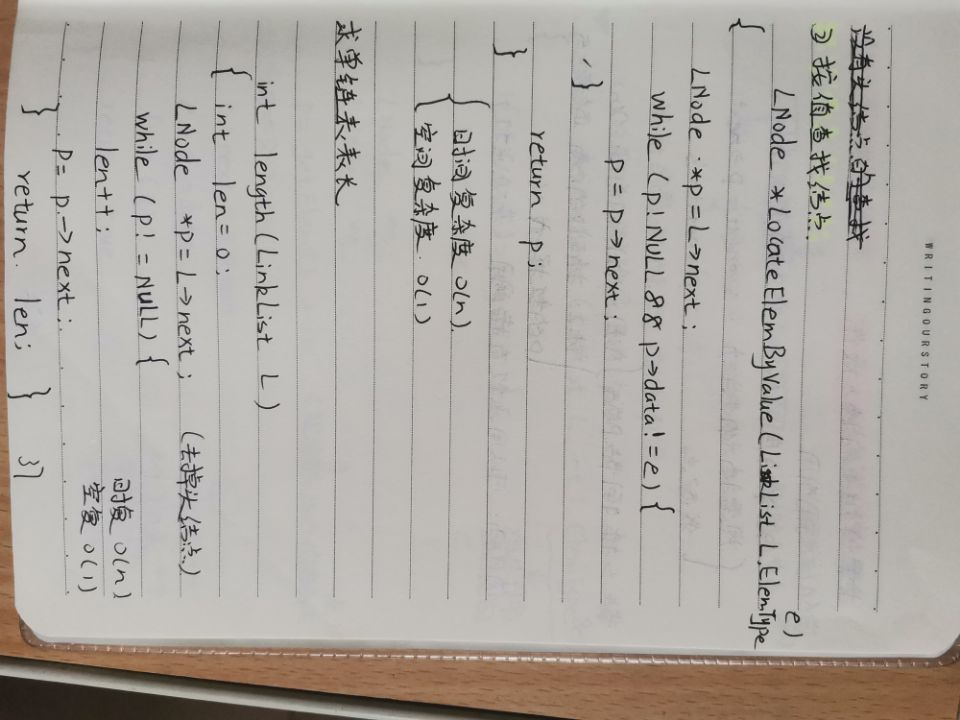 WRITINGOURSTORY
没有头结点的查找
② 按值查找结点
LNode *LocateElemByValue(LinkList L,ElemType e)
{
LNode *p=L->next;
while (p!NULL && p->data!=e){
p=p->next;
}
return p;
}
{ 时间复杂度 O(n)
空间复杂度 O(1)
求单链表表长
int length(LinkList L)
{ int len=0;
LNode *p=L->next; (去掉头结点)
while (p!=NULL){
len++; 时复 O(n)
p=p->next; 空复 O(1)
} return len; } 37